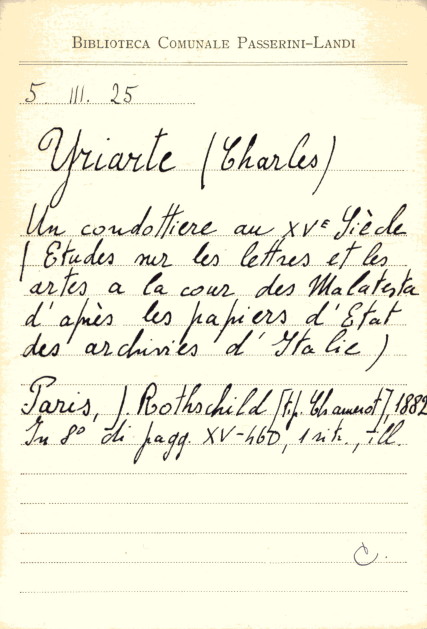 BIBLIOTECA COMUNALE PASSERINI-LANDI
5 III. 25
Yriarte (Charles)
Un condottiere au XVe Siècle
(Etudes sur les lettres et les
artes a la cour des Malatesta
d'après les papiers d'Etat
des archivies d'Italie)
Paris, J. Rothschild [tip. Chamerot], 1882
In 8° di pagg. XV-460, 1 ritr., ill.
C.